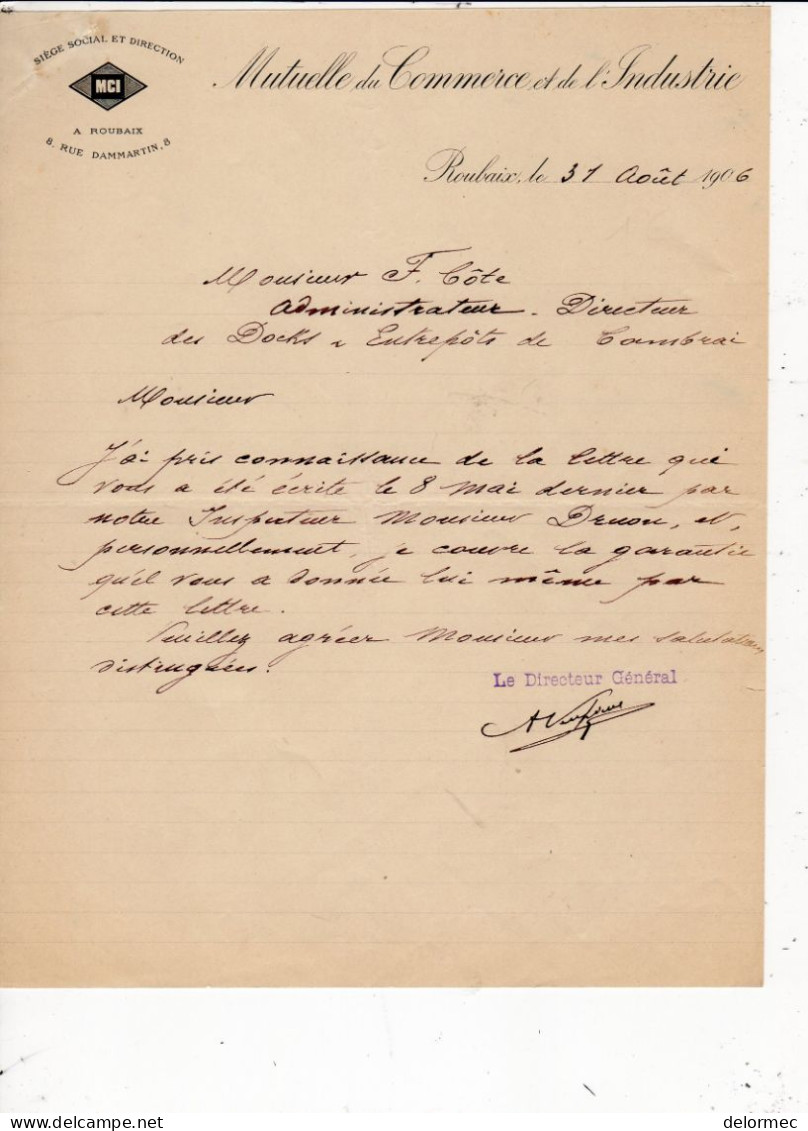 SIÈGE SOCIAL ET DIRECTION
MCI
A ROUBAIX
8, RUE DAMMARTIN, 8
Mutuelle du Commerce et de l'Industrie
Roubaix, le 31 Août 1906
Monsieur F. Côte
Administrateur - Directeur
des Docks & Entrepôts de Cambrai
Monsieur
J'ai pris connaissance de la lettre qui
vous a été écrite le 8 Mai dernier par
notre Inspecteur Monsieur Druon, et,
personnellement, je couvre la garantie
qu'il vous a donnée lui même par
cette lettre.
Veuillez agréer Monsieur mes salutations
distinguées.
Le Directeur Général
delcampe.net
delormec